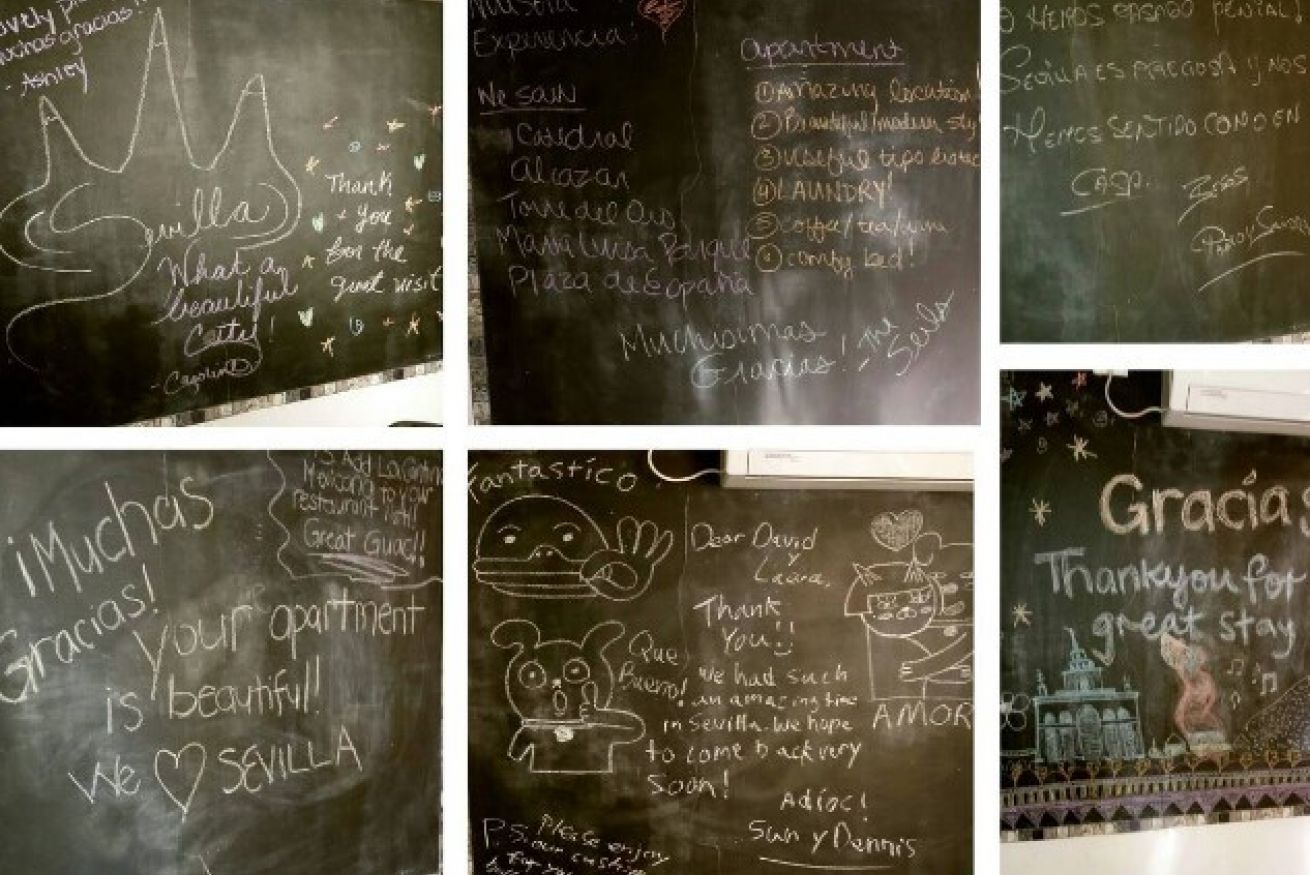 ovely
gracias!!
- Ashley
Sevilla
What a
beautiful
Thank
you
for the
great visit
Experiencia:
We saw
Catedral
Alcazar
Torre del Oro
Maria Luisa Parque
Plaza de España
apartment
① Amazing location!
② Beautiful/modern sty
③ Useful tips
④ LAUNDRY!
⑤ coffee/tea/
⑥ comfy bed!
Muchisimas
Gracias! - The
Seels
HEMOS PASADO GENIAL!
SEVILLA ES PRECIOSA Y NOS
HEMOS SENTIDO COMO EN
CASA.
¡Muchas
Gracias!
P.S. Add La Cantina
Mexicana to your
restaurant list!!
Great Guac!!
your apartment
is beautiful!!
We ♡ SEVILLA
Fantastico
Dear David
y
Laura,
Thank
You!!
Que
Bueno!
we had such
an amazing time
in Sevilla. We hope
to come back very
soon!
Adios!
Sun y Dennis
AMOR
P.S. Please enjoy
our
Gracias
Thank you for
great stay